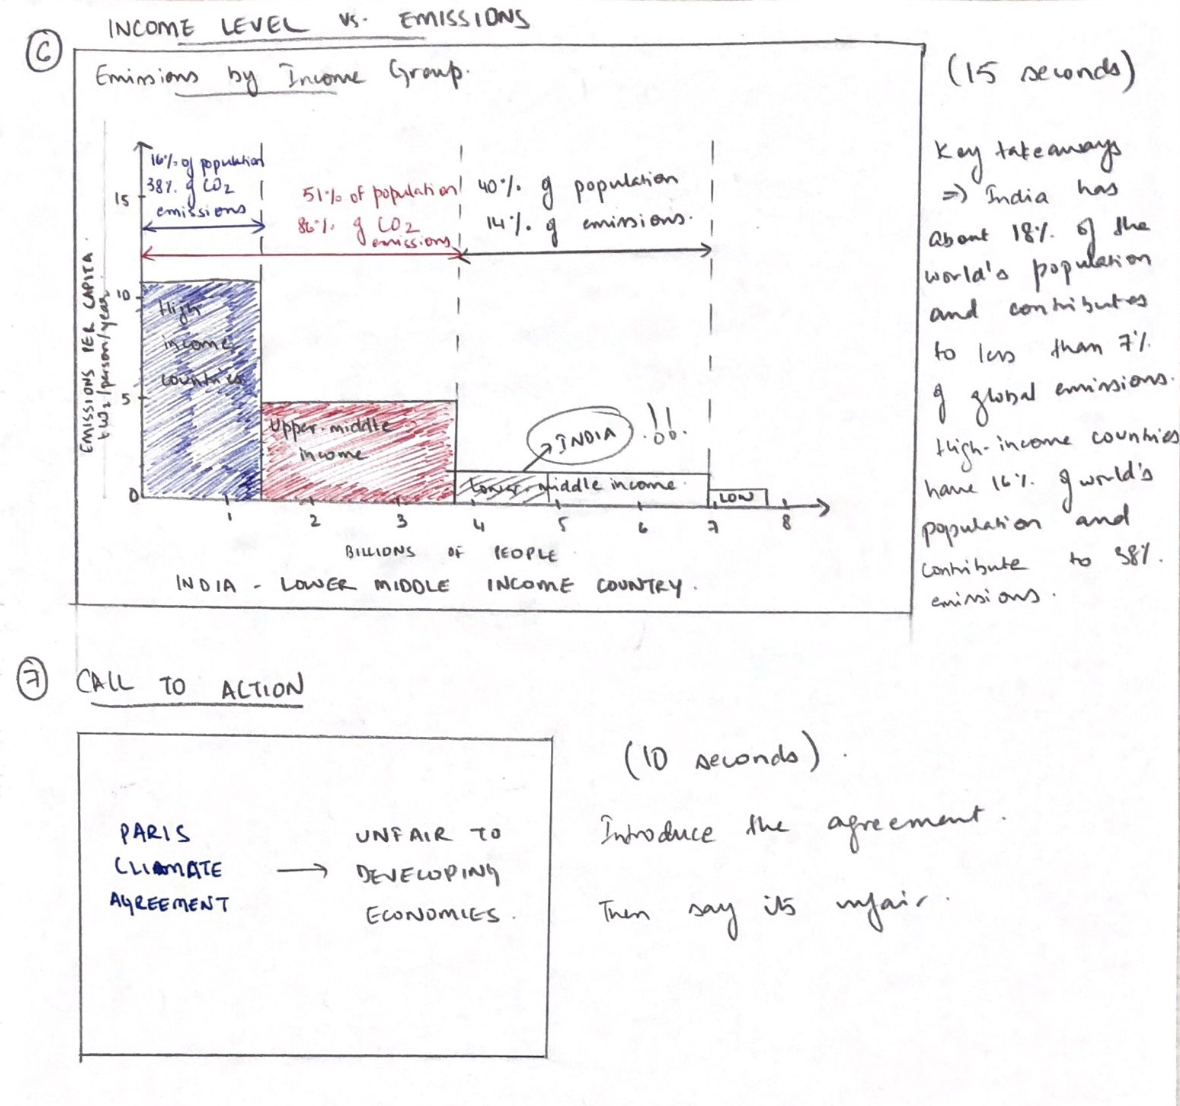 INCOME LEVEL vs. EMISSIONS
6
Emissions by Income Group.
(15 seconds)
16% of population
38% of CO2
emissions
51% of population
86% of CO2
emissions
40% of population
14% of emissions.
EMISSIONS PER CAPITA
tCO2/person/year
15
10
5
0
High
income
countries
Upper-middle
income
INDIA !!
Lower-middle income
LOW
1 2 3 4 5 6 7 8
BILLIONS OF PEOPLE
INDIA - LOWER MIDDLE INCOME COUNTRY.
Key takeaways
⇒ India has
about 18% of the
world's population
and contributes
to less than 7%
of global emissions.
High-income countries
have 16% of world's
population and
contribute to 38%
emissions.
7 CALL TO ACTION
PARIS
CLIMATE
AGREEMENT
→
UNFAIR TO
DEVELOPING
ECONOMIES.
(10 seconds).
Introduce the agreement.
Then say its unfair.